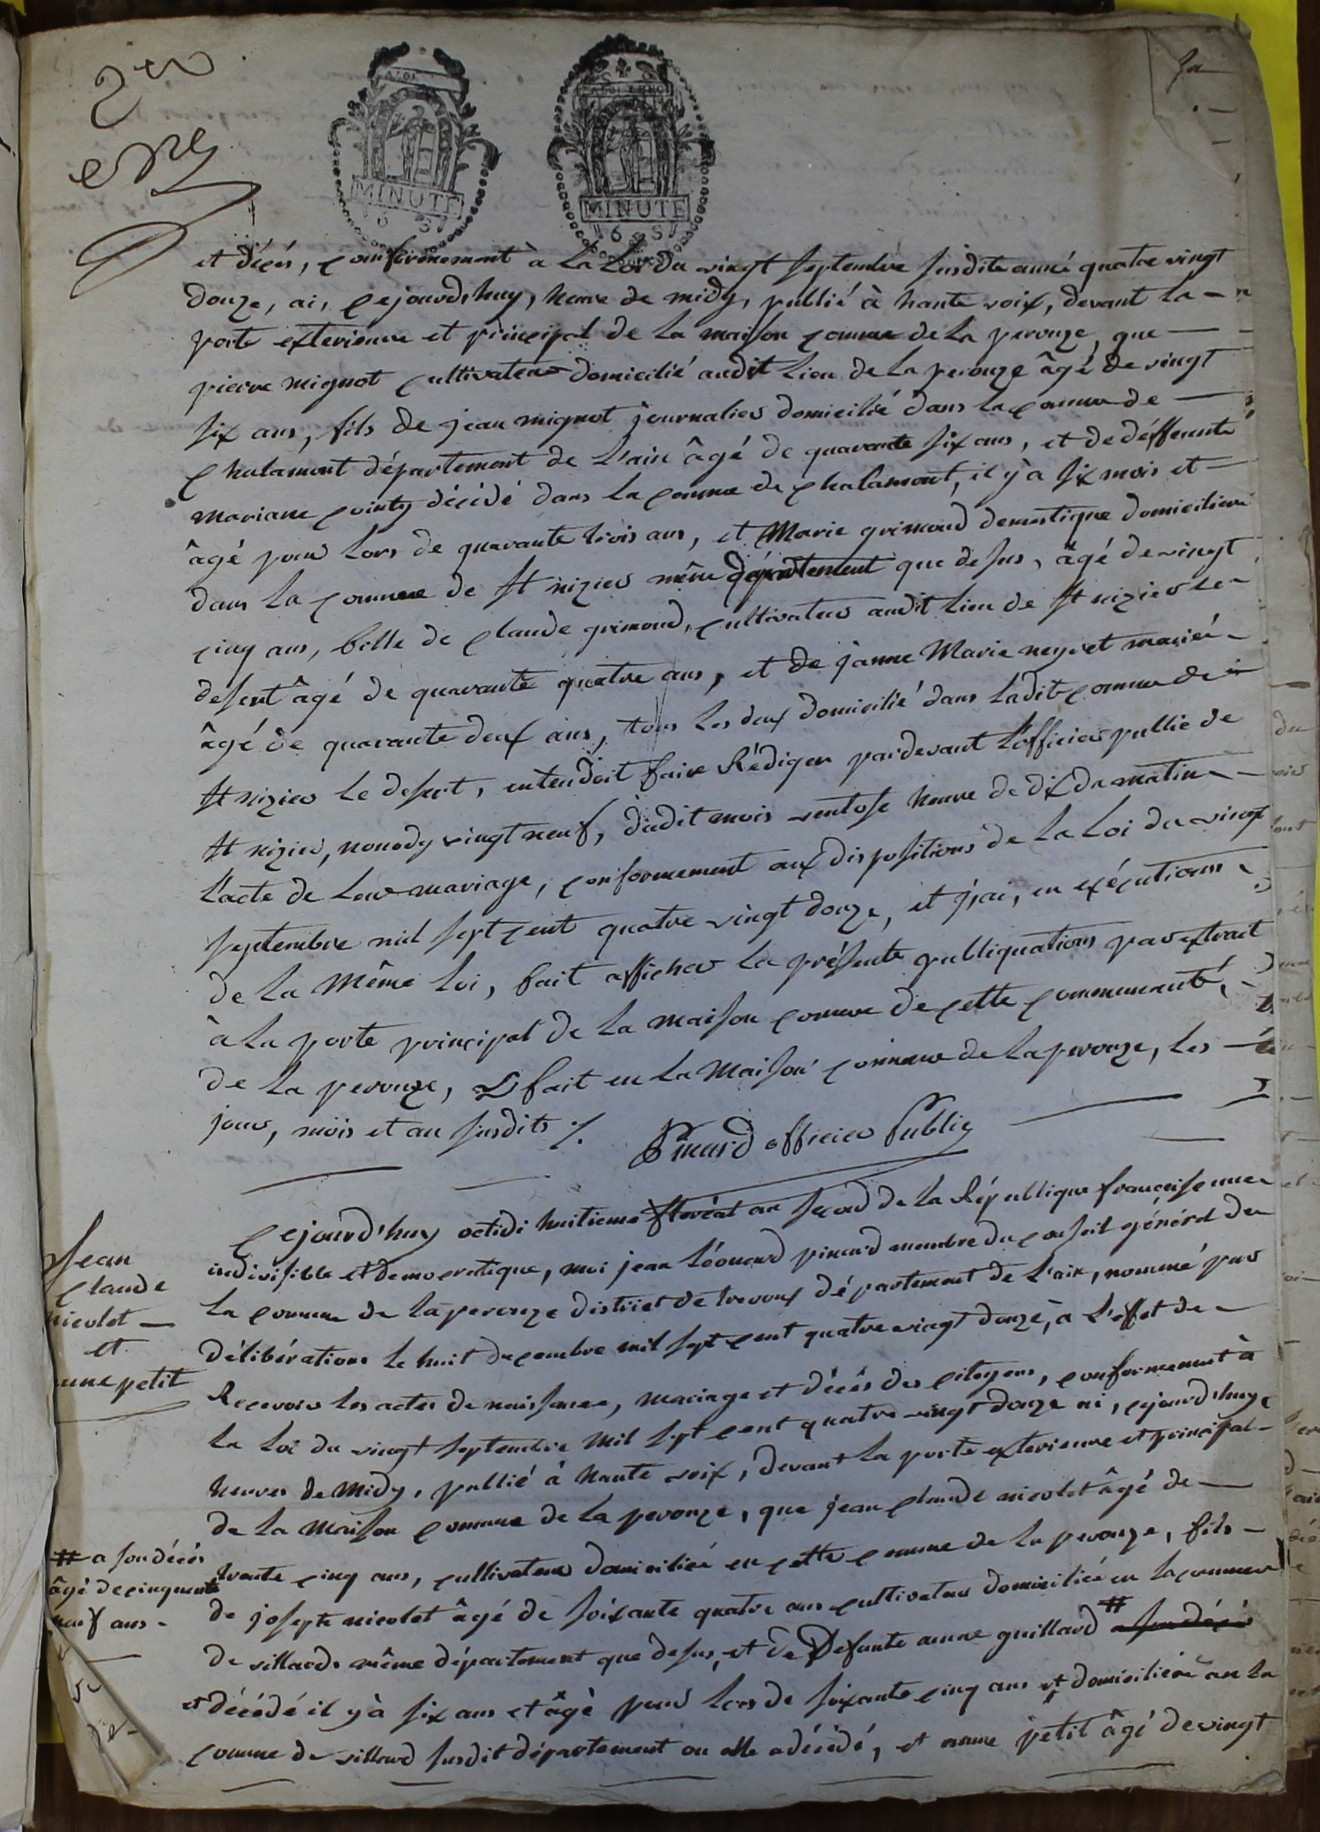 2eme
MINUTE
6 S
MINUTE
6 S
et décés, conformement à la Loi du vingt septembre susdite année quatre vingt
douze, ai, cejourdhuy, heure de midy, publié à haute voix, devant la
porte exterieure et principal de la maison commune de la perouze, que
pierre mignot cultivateur domicilié audit Lieu de la perouze âgé de vingt
six ans, fils de jean mignot journalier domicilié dans la commune de
chalamont département de L'ain âgé de quarante six ans, et de deffeunte
mariane cointy décédé dans la commune de chalamont, il y a six mois et
âgé pour Lors de quarante trois ans, et Marie grimaud domestique domiciliée
dans la commune de st nizier même département que desus, âgé de vingt
cinq ans, fille de claude grimaud, cultivateur audit lieu de st nizier le
desert âgé de quarante quatre ans, et de janne Marie neyret mariée
âgé de quarante deux ans, tous Les deux domicilié dans Ladite commune de
st nizier Le desert, entendoit faire Rédiger pardevant L'officier public de
st nizier, nonody vingt neuf, dudit mois ventose heure de dix du matin
L'acte de Leur mariage, conformement aux dispositions de La Loi du vingt
septembre mil sept cent quatre vingt douze, et j'ai, en exécutions
de La Même Loi, fait afficher La présente publiquations par extrait
à La porte principal de La maison commune de cette communauté,
de La perouze, fait en La Maison commune de La perouze, Les
jour, mois et an susdits ./.
Pinard officier Public
Jean
claude
nicolet
et
anne petit
Cejourd'huy octidi huitieme floréal an second de La République française une
indivisible et démocratique, moi jean Léonard pinard membre du conseil général de
La commune de La perouze district de trevoux département de L'ain, nommé par
délibérations Le huit decembre mil sept cent quatre vingt douze, a L'effet de
Recevoir Les actes de naissance, mariage et décés des citoyens, conformement à
La Loi du vingt septembre Mil sept cent quatre vingt douze ai, cejourdhuy
heures de Midy, publié à haute voix, devant La porte exterieure et principal
de La Maison commune de La perouze, que jean claude nicolet âgé de
trente cinq ans, cultivateur domiciliée en cette commune de La perouze, fils
de josepte nicolet âgé de soixante quatre ans cultivateur domiciliée en La commune
de villards même département que desus, et de Defunte anne guillard # a son décés
# a son décés
âgé de cinquante
neuf ans
et décédé il y à six ans et âgé pour Lors de soixante cinq ans et domiciliée en La
commune de villard susdit département ou elle a décédé, et anne petit âgé de vingt